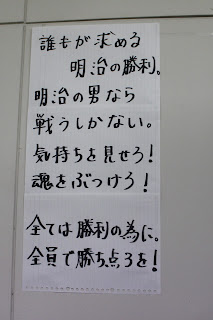 誰もが求める
明治の勝利。
明治の男なら
戦うしかない。
気持ちを見せろ!
魂をぶつけろ!
全ては勝利の為に。
全員で勝ち点3を!